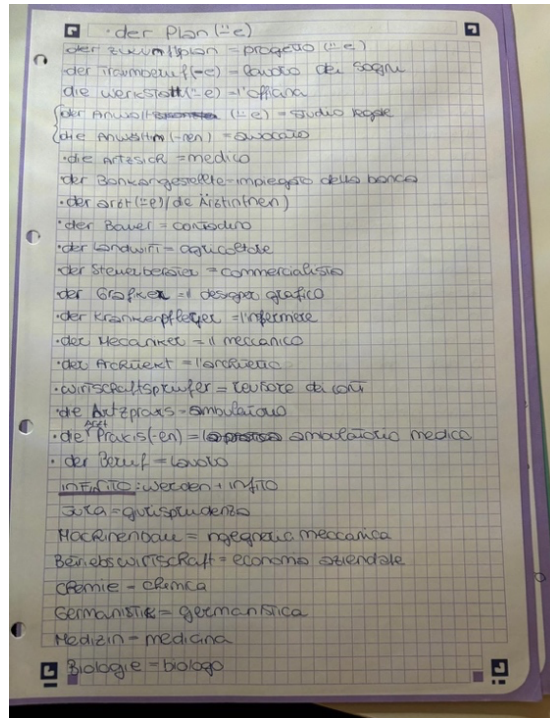 · der Plan (¨-e)
der Zukunftsplan = progetto (¨-e)
der Traumberuf (-e) = lavoro dei sogni
die Werkstatt (¨-e) = l'officina
der Anwalt (¨-e) = studio legale
die Anwältin (-nen) = avvocato
· die = medico
· der Bankangestellte = impiegato della banca
· der arzt (¨-e) / die Ärztin (nen)
· der Bauer = contadino
· der Landwirt = agricoltore
· der Steuerberater = commercialista
der Grafiker = il designer grafico
· der Krankenpfleger = l'infermiere
· der Mecaniker = il meccanico
· der Architekt = l'architetto
· wirtschaftsprüfer = revisore dei conti
· die Artzpraxis = ambulatorio
· die Arzt Praxis (-en) = ambulatorio medico
· der Beruf = lavoro
INFINITO: werden + INFITO
Jura = giurisprudenza
Machinenbau = ingegneria meccanica
Betriebswirtschaft = economia aziendale
Chemie = chimica
Germanistik = germanistica
Medizin = medicina
Biologie = biologo